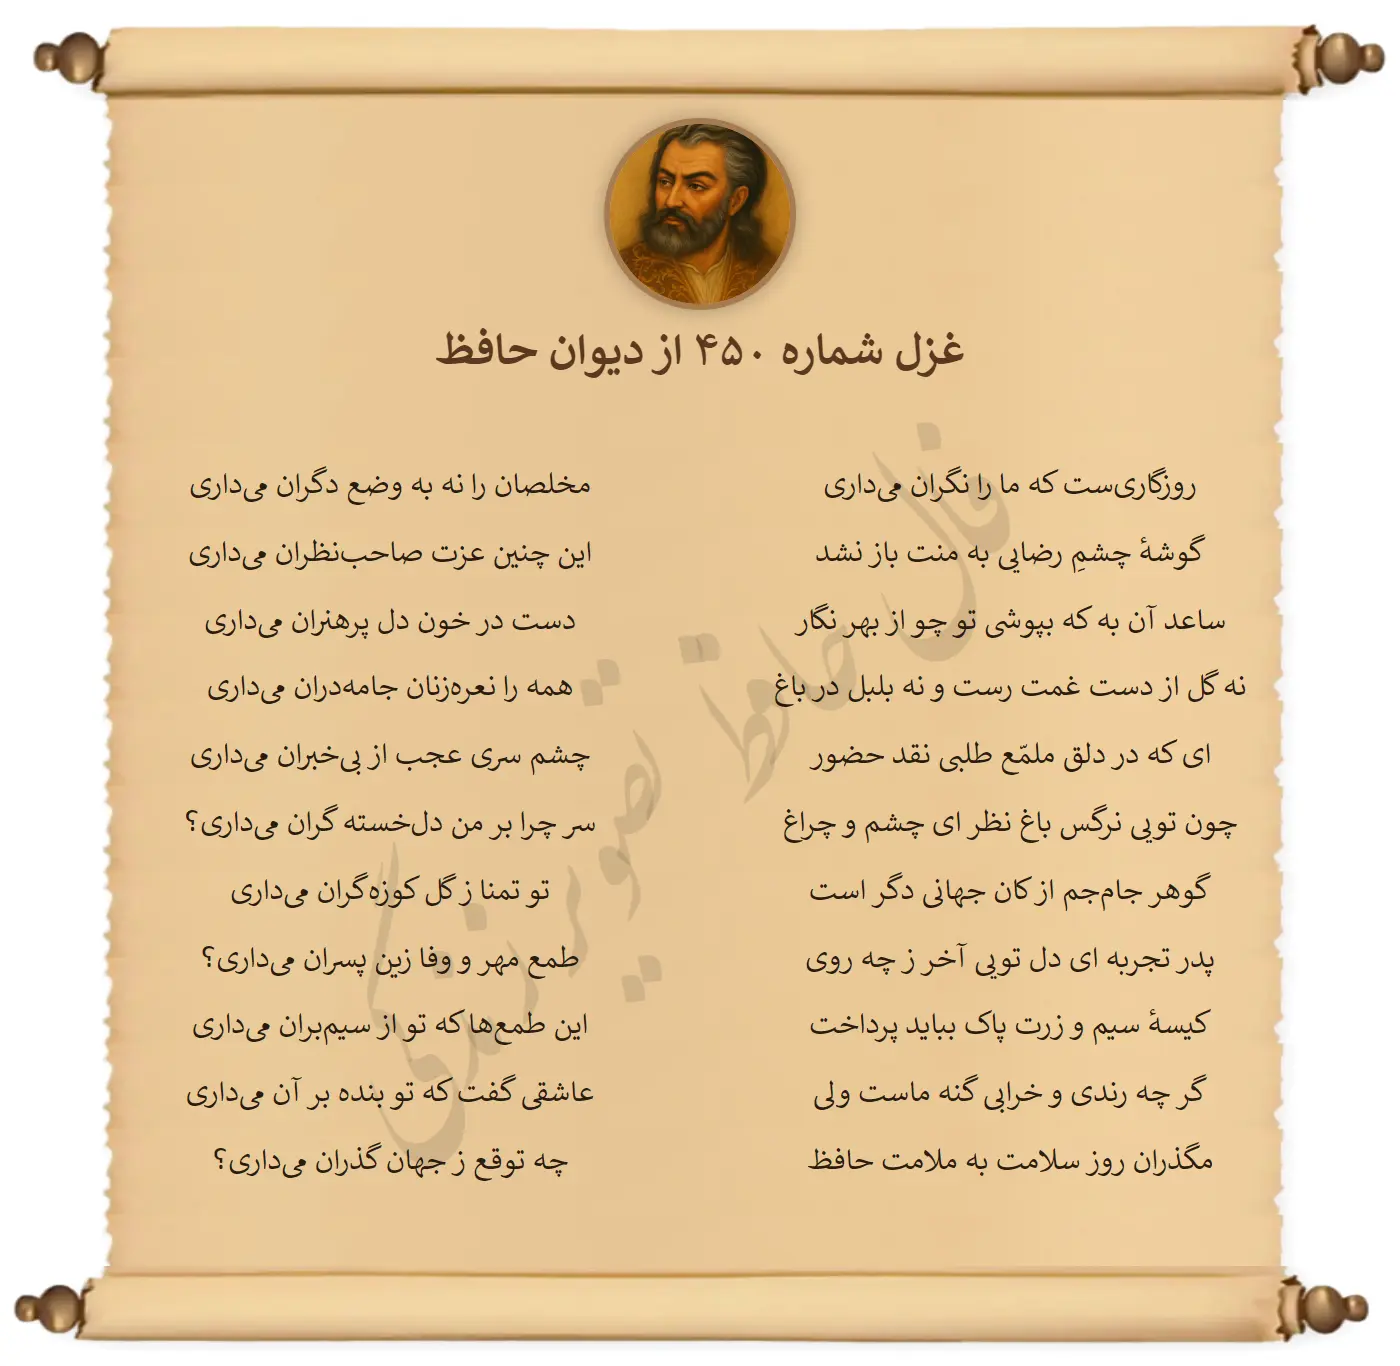 غزل شماره ۴۵۰ از دیوان حافظ
روزگاری‌ست که ما را نگران می‌داری
مخلصان را نه به وضع دگران می‌داری
گوشهٔ چشمِ رضایی به منت باز نشد
این چنین عزت صاحب‌نظران می‌داری
ساعد آن به که بپوشی تو چو از بهر نگار
دست در خون دل پرهنران می‌داری
نه گل از دست غمت رست و نه بلبل در باغ
همه را نعره‌زنان جامه‌دران می‌داری
ای که در دلق ملمّع طلبی نقد حضور
چشم سری عجب از بی‌خبران می‌داری
چون تویی نرگس باغ نظر ای چشم و چراغ
سر چرا بر من دل‌خسته گران می‌داری؟
گوهر جام‌جم از کان جهانی دگر است
تو تمنا ز گل کوزه‌گران می‌داری
پدر تجربه ای دل تویی آخر ز چه روی
طمع مهر و وفا زین پسران می‌داری؟
کیسهٔ سیم و زرت پاک بباید پرداخت
این طمع‌ها که تو از سیم‌بران می‌داری
گر چه رندی و خرابی گنه ماست ولی
عاشقی گفت که تو بنده بر آن می‌داری
مگذران روز سلامت به ملامت حافظ
چه توقع ز جهان گذران می‌داری؟
فال حافظ تصویر زندگی